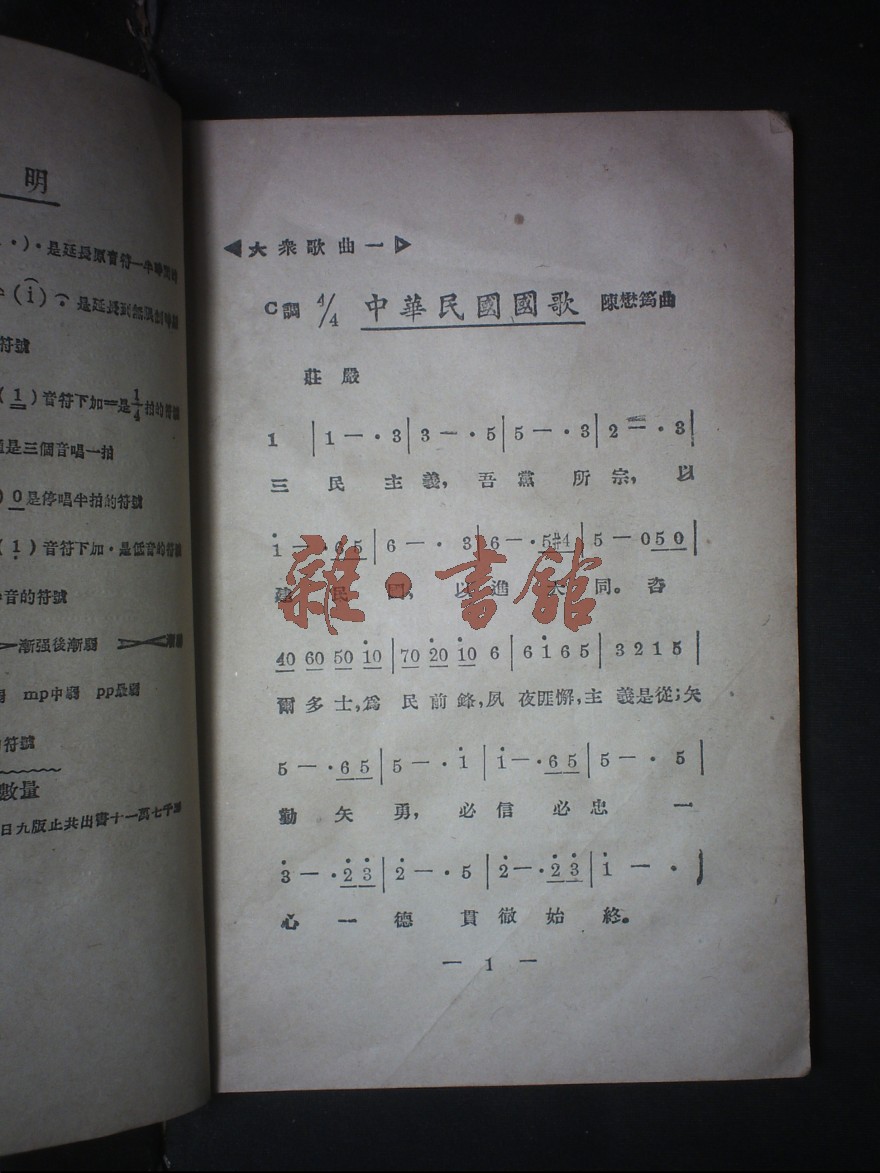 明
是延長原音符一半
(i) 是延長到無限
符號
(1)音符下加=是1/4拍的符號
是三個音唱一拍
0是停唱半拍的符號
(1)音符下加·是低音的符號
音的符號
漸强後漸弱
mp中弱 pp最弱
符號
數量
日九版止共出書十一萬七千
◀大衆歌曲一▷
C調 4/4 中華民國國歌 陳懋篙曲
莊嚴
1 |1—·3|3—·5|5—·3|2—·3|
三民主義,吾黨所宗,以
i—·65|6—·3|6—·5#4|5—050|
建民國,以進大同。咨
40 60 50 i0|70 20 i0 6|6i65|3215|
爾多士,爲民前鋒,夙夜匪懈,主義是從;矢
5—·65|5—·i|i—·65|5—·5|
勤矢勇,必信必忠一
3—·23|2—·5|2—·23|i—·|
心一德貫徹始終。
— 1 —
雜·書館